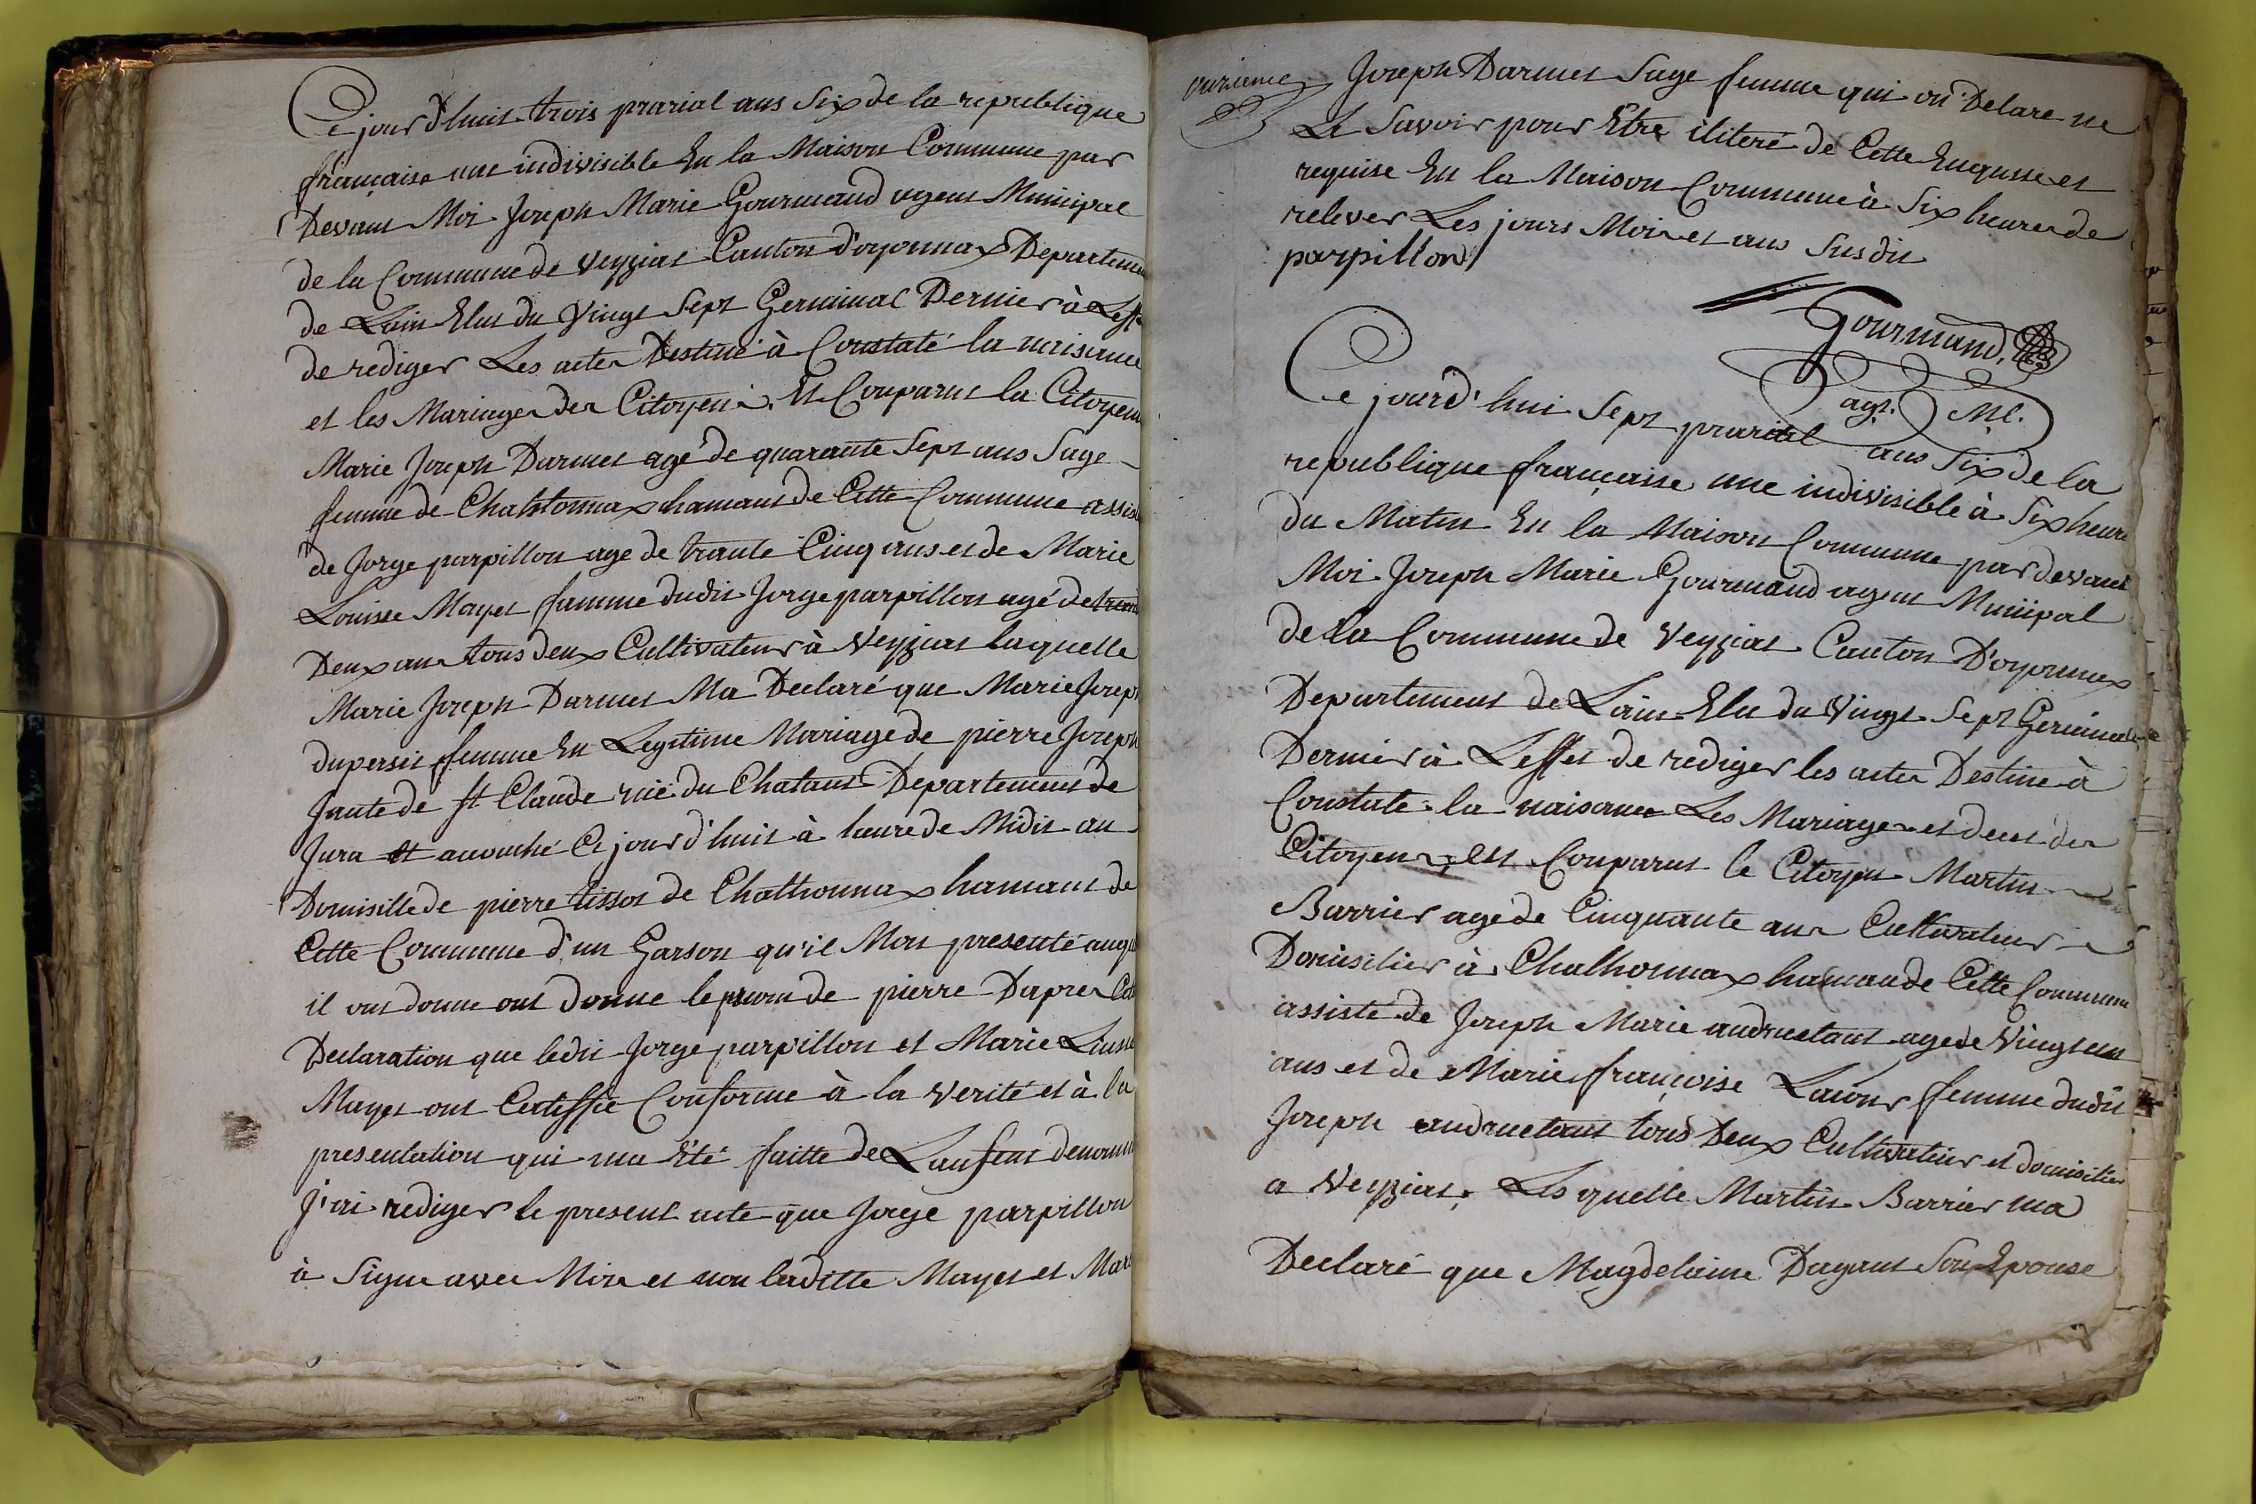 Ce jour d'huit trois prarial ans Six de la republique
française une indivisible En la Maison Commune par
Devant Moi Joseph Marie Gourmand agent Municipal
de la Commune de Veyziat Canton d'oyonnax Departemen
de Lain Elus du Vingt Sept Germinal Dernier à Leff
de rediger Les actes Destiné à Constaté la naisance
et les Mariages des Citoyens. Est Conparut la Citoyen
Marie Joseph Darmet agé de quarante Sept ans Sage
femme de Chatonnax hamant de Cette Commune assist
de Jorge parpillon age de trante Cinq ans et de Marie
Louisse Mayet famme dudit Jorge parpillon agé de trant
Deux ans tous deux Cultivateur à Veyziat laquelle
Marie Joseph Darmet Ma Declaré que Marie Joseph
dupersit femme En Legitime Mariage de pierre Joseph
Jante de St Claude rüe du Chatant Departement de
Jura et acouché Ce jour d'huit à heure de Midit au
Domisille de pierre tissot de Chathonnax hamant de
Cette Commune d'un Garson qu'il Mont presenté auqu
il ont donne ont Donne le prenom de pierre Dapres Cet
Declaration que ledit Jorge parpillon et Marie Louisse
Mayet ont Certiffie Conforme à la Verité et à la
presentation qui ma Eté faitte de Lanfent denomm
J'ai rediger le present acte que Jorge parpillon
à Signe avec Moi et non laditte Mayet et Mari
Joseph Darmet Sage femme qui on Delare ne
Le Savoir pour Etre iliteré de Cette Enqusse et
requise En la Maison Commune à Six heure de
relever Les jours Moi et ans Susdit
parpillon
Gourmand,
agt. Ml.
Ce jourd'hui Sept prarial ans Six de la
republique française une indivisible à Six heure
du Matin En la Maison Commune par devant
Moi Joseph Marie Gourmand agent Muniipal
de la Commune de Veyziat Canton D'oyonnax
Departement de Lain Elu du Vingt Sept Germinal
Dernier à Leffet de rediger les actes Destine à
Constate la naisance Les Mariages et deces des
Citoyens, Est Conparut le Citoyen Martin
Barrier agé de Cinquante ans Cultivateur
Domisilier à Chalhonnax hamau de Cette Commune
assisté de Joseph Marie andruetant age de Vingt un
ans et de Marie françoise Lacour femme dudit
Joseph andruetant tous Deux Cultivateur et domisilier
a Veyziat. Les quelle Martin Barrier ma
Declaré que Magdelaine Dagant Son Epouse